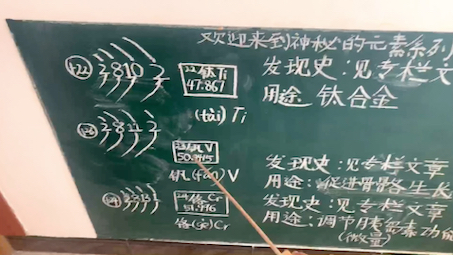 欢迎来到神秘的元素系列
+22 2 8 10 2
22 钛 Ti
47.867
(tài) Ti
发现史:见专栏文
用途 钛合金
2 8 11 2
V
钒(fán) V
发现史:见专栏文章
用途:促进骨骼生长
铬 Cr
51.996
铬(gè)Cr
发现史:见专栏文章
用途:调节胰岛素功能
(微量)